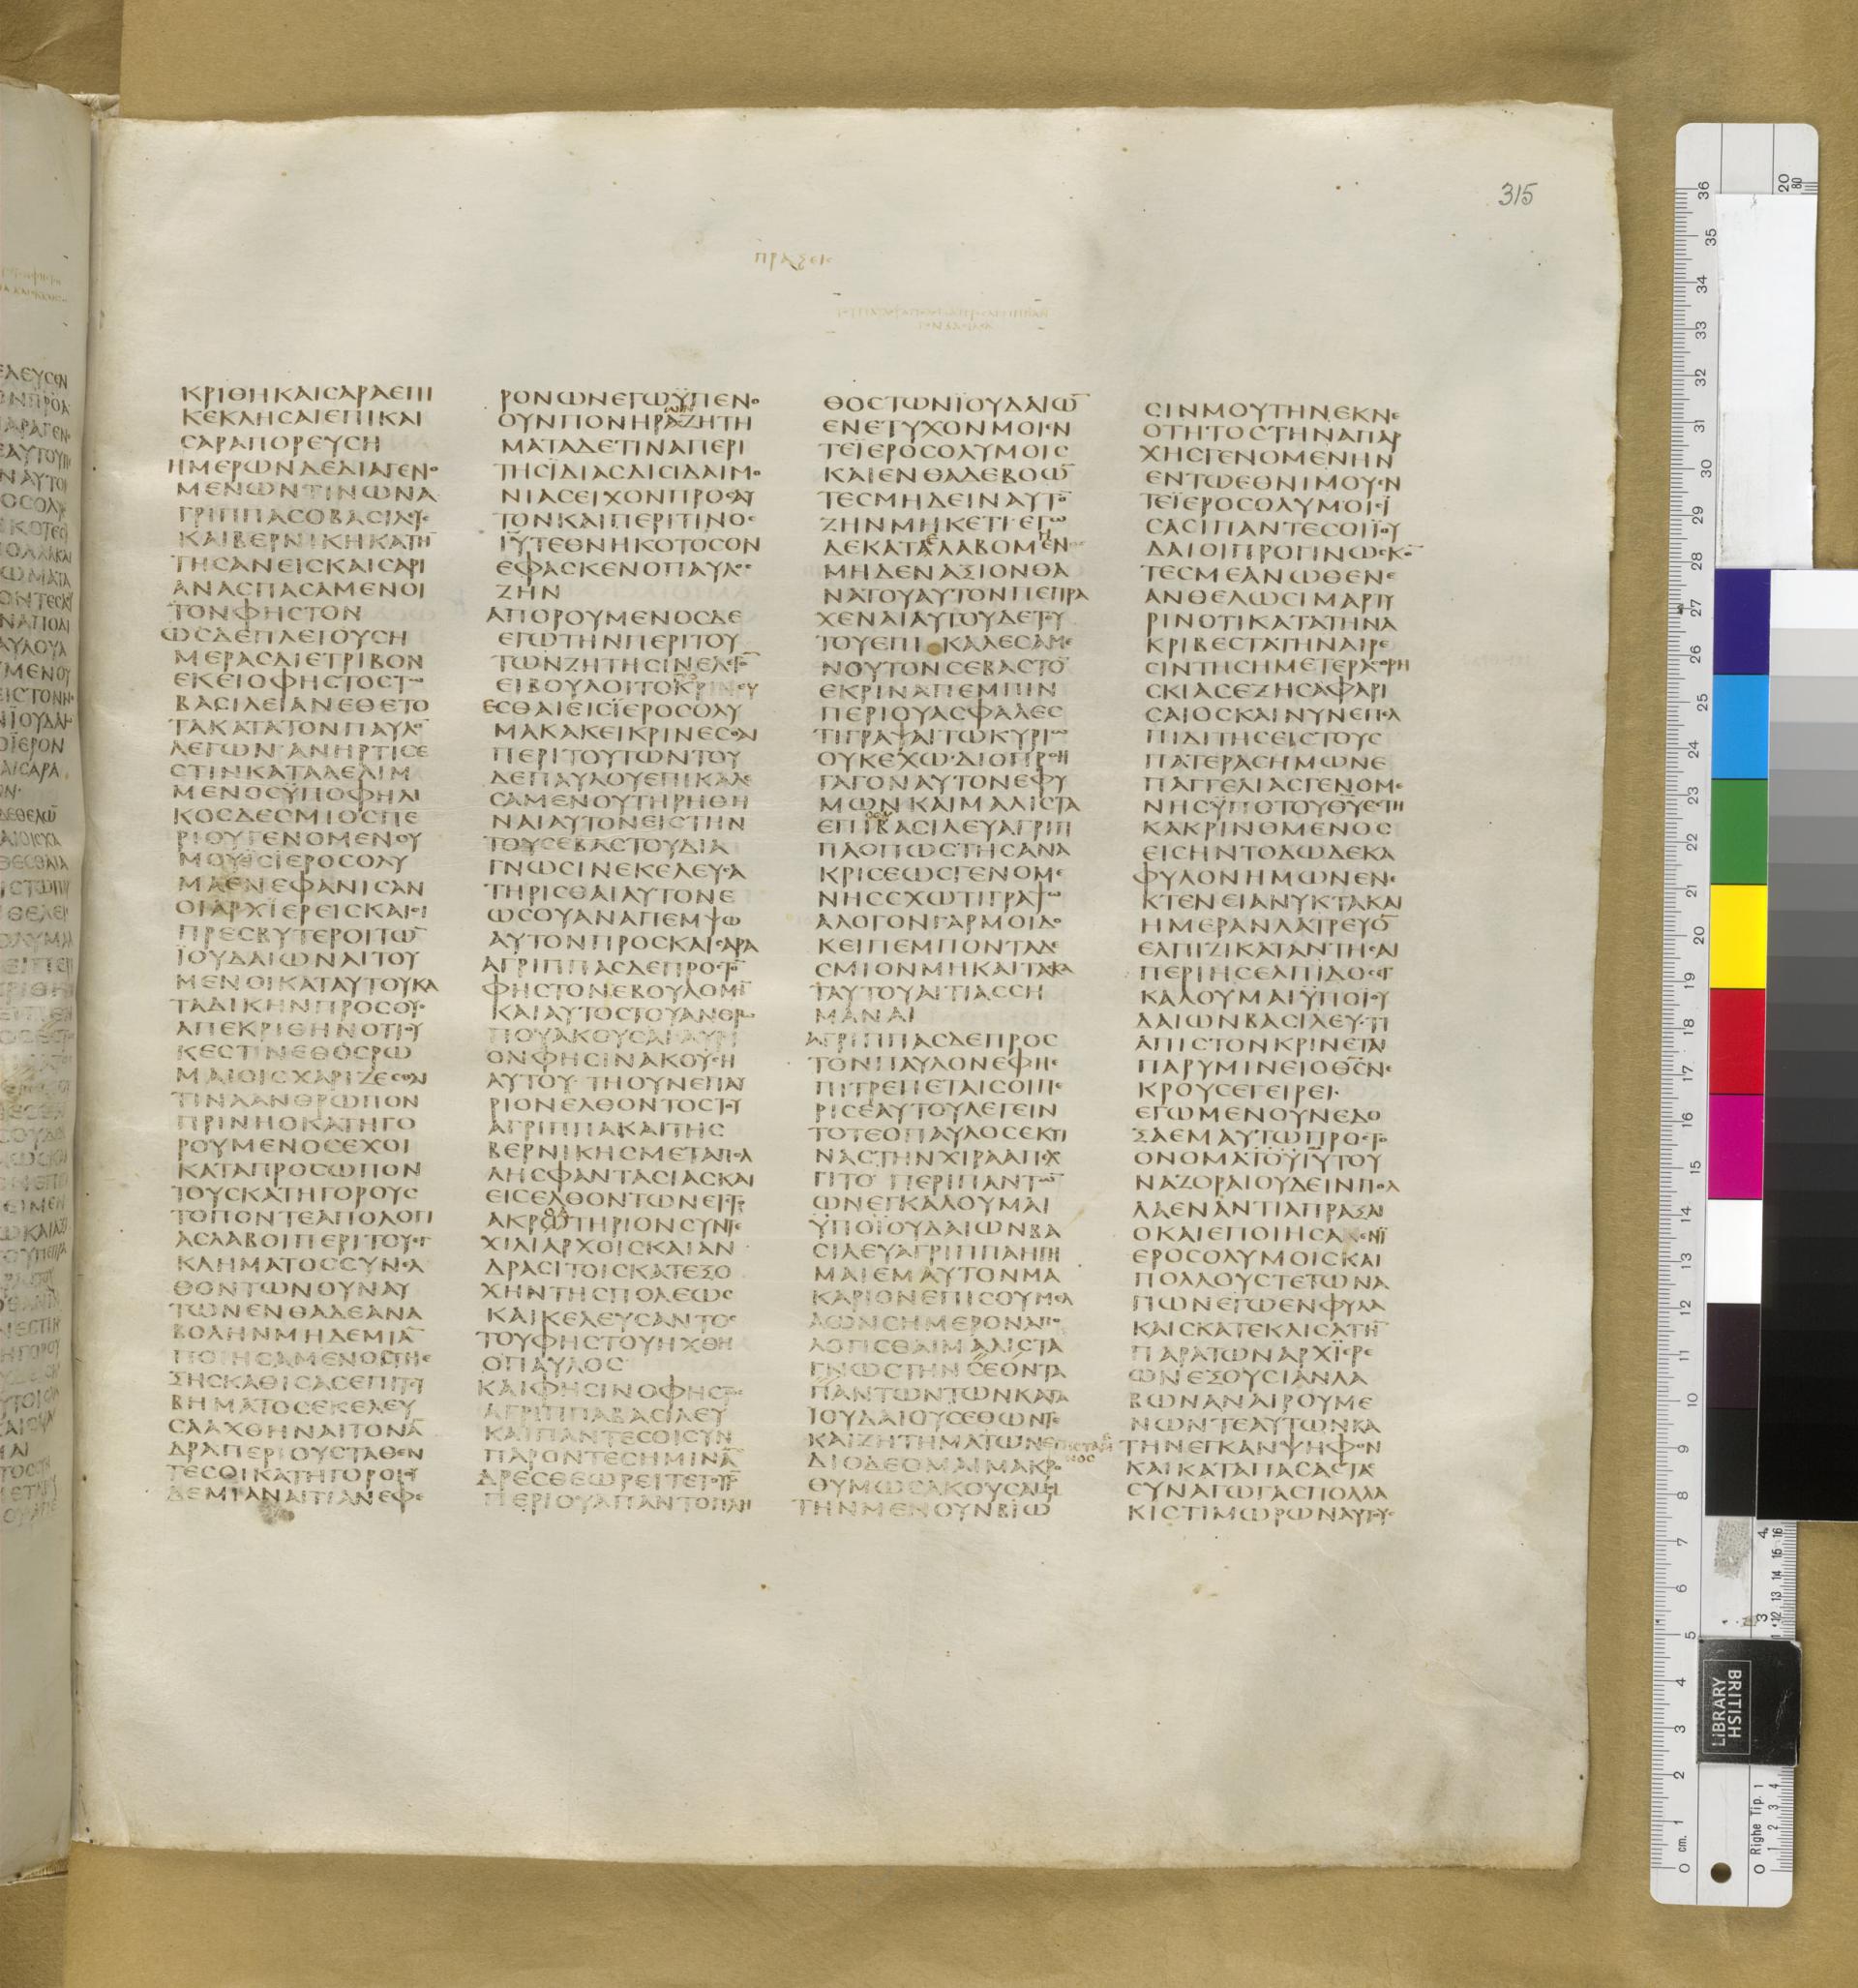 315
ΠΡΑΞΕΙϹ
ΚΡΙΘΗΚΑΙϹΑΡΑΕΠΙ
ΚΕΚΛΗϹΑΙΕΠΙΚΑΙ
ϹΑΡΑΠΟΡΕΥϹΗ
ΗΜΕΡΩΝΔΕΔΙΑΓΕΝΟ
ΜΕΝΩΝΤΙΝΩΝΑ
ΓΡΙΠΠΑϹΟΒΑϹΙΛΕΥϹ
ΚΑΙΒΕΡΝΙΚΗΚΑΤΗ
ΤΗϹΑΝΕΙϹΚΑΙϹΑΡΙ
ΑΝΑϹΠΑϹΑΜΕΝΟΙ
ΤΟΝΦΗϹΤΟΝ
ΩϹΔΕΠΛΕΙΟΥϹΗ
ΜΕΡΑϹΔΙΕΤΡΙΒΟΝ
ΕΚΕΙΟΦΗϹΤΟϹΤΩ
ΒΑϹΙΛΕΙΑΝΕΘΕΤΟ
ΤΑΚΑΤΑΤΟΝΠΑΥΛΟ̅
ΛΕΓΩΝ·ΑΝΗΡΤΙϹΕ
ϹΤΙΝΚΑΤΑΛΕΛΙΜ
ΜΕΝΟϹΫΠΟΦΗΛΙ
ΚΟϹΔΕϹΜΙΟϹΠΕ
ΡΙΟΥΓΕΝΟΜΕΝΟΥ
ΜΟΥΕΙϹΪΕΡΟϹΟΛΥ
ΜΑΕΝΕΦΑΝΙϹΑΝ
ΟΙΑΡΧΪΕΡΕΙϹΚΑΙΟΙ
ΠΡΕϹΒΥΤΕΡΟΙΤΩ̅
ΪΟΥΔΑΙΩΝΑΙΤΟΥ
ΜΕΝΟΙΚΑΤΑΥΤΟΥΚΑ
ΤΑΔΙΚΗΝΠΡΟϹΟΥϹ
ΑΠΕΚΡΙΘΗΝΟΤΙΟΥ
ΚΕϹΤΙΝΕΘΟϹΡΩ
ΜΑΙΟΙϹΧΑΡΙΖΕϹΘΑΙ
ΤΙΝΑΑΝΘΡΩΠΟΝ
ΠΡΙΝΗΟΚΑΤΗΓΟ
ΡΟΥΜΕΝΟϹΕΧΟΙ
ΚΑΤΑΠΡΟϹΩΠΟΝ
ΤΟΥϹΚΑΤΗΓΟΡΟΥϹ
ΤΟΠΟΝΤΕΑΠΟΛΟΓΙ
ΑϹΛΑΒΟΙΠΕΡΙΤΟΥΕΓ
ΚΛΗΜΑΤΟϹϹΥΝΕΛ
ΘΟΝΤΩΝΟΥΝΑΥ
ΤΩΝΕΝΘΑΔΕΑΝΑ
ΒΟΛΗΝΜΗΔΕΜΙΑ̅
ΠΟΙΗϹΑΜΕΝΟϹΤΗΕ
ΞΗϹΚΑΘΙϹΑϹΕΠΙΤΟΥ
ΒΗΜΑΤΟϹΕΚΕΛΕΥ
ϹΑΑΧΘΗΝΑΙΤΟΝΑ̅
ΔΡΑΠΕΡΙΟΥϹΤΑΘΕΝ
ΤΕϹΟΙΚΑΤΗΓΟΡΟΙΟΥ
ΔΕΜΙΑΝΑΙΤΙΑΝΕΦΕ
ΡΟΝΩΝΕΓΩΫΠΕΝΟ
ΟΥΝΠΟΝΗΡΑΖΗΤΗ
ΜΑΤΑΔΕΤΙΝΑΠΕΡΙ
ΤΗϹΪΔΙΑϹΔΙϹΙΔΑΙΜΟ
ΝΙΑϹΕΙΧΟΝΠΡΟϹΑΥ
ΤΟΝΚΑΙΠΕΡΙΤΙΝΟϹ
ΙΥ̅ΤΕΘΝΗΚΟΤΟϹΟΝ
ΕΦΑϹΚΕΝΟΠΑΥΛΟϹ
ΖΗΝ
ΑΠΟΡΟΥΜΕΝΟϹΔΕ
ΕΓΩΤΗΝΠΕΡΙΤΟΥ
ΤΩΝΖΗΤΗϹΙΝΕΛΕΓΟ̅
ΕΙΒΟΥΛΟΙΤΟΚΡΙΝΕΥ
ΕϹΘΑΙΕΙϹΪΕΡΟϹΟΛΥ
ΜΑΚΑΚΕΙΚΡΙΝΕϹΘΑΙ
ΠΕΡΙΤΟΥΤΩΝΤΟΥ
ΔΕΠΑΥΛΟΥΕΠΙΚΑΛΕ
ϹΑΜΕΝΟΥΤΗΡΗΘΗ
ΝΑΙΑΥΤΟΝΕΙϹΤΗΝ
ΤΟΥϹΕΒΑϹΤΟΥΔΙΑ
ΓΝΩϹΙΝΕΚΕΛΕΥϹΑ
ΤΗΡΙϹΘΑΙΑΥΤΟΝΕ
ΩϹΟΥΑΝΑΠΕΜΨΩ
ΑΥΤΟΝΠΡΟϹΚΑΙϹΑΡΑ
ΑΓΡΙΠΠΑϹΔΕΠΡΟϹΤΟ̅
ΦΗϹΤΟΝΕΒΟΥΛΟΜΗ̅
ΚΑΙΑΥΤΟϹΤΟΥΑΝΘΡΩ
ΠΟΥΑΚΟΥϹΑΙΑΥΡΙ
ΟΝΦΗϹΙΝΑΚΟΥϹΗ
ΑΥΤΟΥ·ΤΗΟΥΝΕΠΑΥ
ΡΙΟΝΕΛΘΟΝΤΟϹΤΟΥ
ΑΓΡΙΠΠΑΚΑΙΤΗϹ
ΒΕΡΝΙΚΗϹΜΕΤΑΠΟΛ
ΛΗϹΦΑΝΤΑϹΙΑϹΚΑΙ
ΕΙϹΕΛΘΟΝΤΩΝΕΙϹΤΟ
ΑΚΡΩΤΗΡΙΟΝϹΥΝΤΕ
ΧΙΛΙΑΡΧΟΙϹΚΑΙΑΝ
ΔΡΑϹΙΤΟΙϹΚΑΤΕΞΟ
ΧΗΝΤΗϹΠΟΛΕΩϹ
ΚΑΙΚΕΛΕΥϹΑΝΤΟϹ
ΤΟΥΦΗϹΤΟΥΗΧΘΗ
ΟΠΑΥΛΟϹ
ΚΑΙΦΗϹΙΝΟΦΗϹΤΟϹ
ΑΓΡΙΠΠΑΒΑϹΙΛΕΥ
ΚΑΙΠΑΝΤΕϹΟΙϹΥΝ
ΠΑΡΟΝΤΕϹΗΜΙΝΑ̅
ΔΡΕϹΘΕΩΡΕΙΤΕΤΟΥΤΟ̅
ΠΕΡΙΟΥΑΠΑΝΤΟΠΛΗ
ΘΟϹΤΩΝΪΟΥΔΑΙΩ̅
ΕΝΕΤΥΧΟΝΜΟΙΕΝ
ΤΕΪΕΡΟϹΟΛΥΜΟΙϹ
ΚΑΙΕΝΘΑΔΕΒΟΩ̅
ΤΕϹΜΗΔΕΙΝΑΥΤΟ̅
ΖΗΝΜΗΚΕΤΙ·ΕΓΩ
ΔΕΚΑΤΑΕΛΑΒΟΜΕΝ
ΜΗΔΕΝΑΞΙΟΝΘΑ
ΝΑΤΟΥΑΥΤΟΝΠΕΠΡΑ
ΧΕΝΑΙΑΥΤΟΥΔΕΤΟΥ
ΤΟΥΕΠΙΚΑΛΕϹΑΜΕ
ΝΟΥΤΟΝϹΕΒΑϹΤΟ̅
ΕΚΡΙΝΑΠΕΜΠΙΝ
ΠΕΡΙΟΥΑϹΦΑΛΕϹ
ΤΙΓΡΑΨΑΙΤΩΚΥΡΙΩ
ΟΥΚΕΧΩ·ΔΙΟΠΡΟΗ
ΓΑΓΟΝΑΥΤΟΝΕΦΥ
ΜΩΝΚΑΙΜΑΛΙϹΤΑ
ΕΠΙΒΑϹΙΛΕΥΑΓΡΙΠ
ΠΑΟΠΩϹΤΗϹΑΝΑ
ΚΡΙϹΕΩϹΓΕΝΟΜΕ
ΝΗϹϹΧΩΤΙΓΡΑΨΩ
ΑΛΟΓΟΝΓΑΡΜΟΙΔΟ
ΚΕΙΠΕΜΠΟΝΤΑΔΕ
ϹΜΙΟΝΜΗΚΑΙΤΑΚΑ
ΤΑΥΤΟΥΑΙΤΙΑϹϹΗ
ΜΑΝΑΙ
ΑΓΡΙΠΠΑϹΔΕΠΡΟϹ
ΤΟΝΠΑΥΛΟΝΕΦΗΕ
ΠΙΤΡΕΠΕΤΑΙϹΟΙΠΕ
ΡΙϹΕΑΥΤΟΥΛΕΓΕΙΝ
ΤΟΤΕΟΠΑΥΛΟϹΕΚΤΙ
ΝΑϹΤΗΝΧΙΡΑΑΠΕΛ
ΓΙΤΟ ΠΕΡΙΠΑΝΤΩ̅
ΩΝΕΓΚΑΛΟΥΜΑΙ
ΫΠΟΪΟΥΔΑΙΩΝΒΑ
ϹΙΛΕΥΑΓΡΙΠΠΑΗΓΗ
ΜΑΙΕΜΑΥΤΟΝΜΑ
ΚΑΡΙΟΝΕΠΙϹΟΥΜΕΛ
ΛΩΝϹΗΜΕΡΟΝΑΠΟ
ΛΟΓΙϹΘΑΙΜΑΛΙϹΤΑ
ΓΝΩϹΤΗΝϹΕΟΝΤΑ
ΠΑΝΤΩΝΤΩΝΚΑΤΑ
ΪΟΥΔΑΙΟΥϹΕΘΩΝΤΕ
ΚΑΙΖΗΤΗΜΑΤΩΝΕΠΙϹΤΑΜΕΝΟϹ
ΔΙΟΔΕΟΜΑΙΜΑΚΡΟ
ΘΥΜΩϹΑΚΟΥϹΑΙΜΟΥ
ΤΗΝΜΕΝΟΥΝΒΙΩ
ϹΙΝΜΟΥΤΗΝΕΚΝΕ
ΟΤΗΤΟϹΤΗΝΑΠΑΡ
ΧΗϹΓΕΝΟΜΕΝΗΝ
ΕΝΤΩΕΘΝΙΜΟΥΕΝ
ΤΕΪΕΡΟϹΟΛΥΜΟΙϹΪ
ϹΑϹΙΠΑΝΤΕϹΟΙΪΟΥ
ΔΑΙΟΙΠΡΟΓΙΝΩϹΚΟ̅
ΤΕϹΜΕΑΝΩΘΕΝΕ
ΑΝΘΕΛΩϹΙΜΑΡΤΥ
ΡΙΝΟΤΙΚΑΤΑΤΗΝΑ
ΚΡΙΒΕϹΤΑΤΗΝΑΙΡΕ
ϹΙΝΤΗϹΗΜΕΤΕΡΑϹΘΡΗ
ϹΚΙΑϹΕΖΗϹΑΦΑΡΙ
ϹΑΙΟϹΚΑΙΝΥΝΕΠΕΛ
ΠΙΔΙΤΗϹΕΙϹΤΟΥϹ
ΠΑΤΕΡΑϹΗΜΩΝΕ
ΠΑΓΓΕΛΙΑϹΓΕΝΟΜΕ
ΝΗϹΫΠΟΤΟΥΘΥ̅ΕϹΤΗ
ΚΑΚΡΙΝΟΜΕΝΟϹ
ΕΙϹΗΝΤΟΔΩΔΕΚΑ
ΦΥΛΟΝΗΜΩΝΕΝΕ
ΚΤΕΝΕΙΑΝΥΚΤΑΚΑΙ
ΗΜΕΡΑΝΛΑΤΡΕΥΟ̅
ΕΛΠΙΖΙΚΑΤΑΝΤΗϹΑΙ
ΠΕΡΙΗϹΕΛΠΙΔΟϹΕΓ
ΚΑΛΟΥΜΑΙΫΠΟΪΟΥ
ΔΑΙΩΝΒΑϹΙΛΕΥ·ΤΙ
ΑΠΙϹΤΟΝΚΡΙΝΕΤΑΙ
ΠΑΡΥΜΙΝΕΙΟΘϹ̅ΝΕ
ΚΡΟΥϹΕΓΕΙΡΕΙ·
ΕΓΩΜΕΝΟΥΝΕΔΟ
ΞΑΕΜΑΥΤΩΠΡΟϹΤΟ
ΟΝΟΜΑΪΟΥΙΥ̅ΤΟΥ
ΝΑΖΟΡΑΙΟΥΔΕΙΝΠΟΛ
ΛΑΕΝΑΝΤΙΑΠΡΑΞΑΙ
ΟΚΑΙΕΠΟΙΗϹΑΕΝΪ
ΕΡΟϹΟΛΥΜΟΙϹΚΑΙ
ΠΟΛΛΟΥϹΤΕΤΩΝΑ
ΓΙΩΝΕΓΩΕΝΦΥΛΑ
ΚΑΙϹΚΑΤΕΚΛΙϹΑΤΗ̅
ΠΑΡΑΤΩΝΑΡΧΪΕΡΕ
ΩΝΕΞΟΥϹΙΑΝΛΑ
ΒΩΝΑΝΑΙΡΟΥΜΕ
ΝΩΝΤΕΑΥΤΩΝΚΑ
ΤΗΝΕΓΚΑΝΨΗΦΟΝ
ΚΑΙΚΑΤΑΠΑϹΑϹΤΑϹ
ϹΥΝΑΓΩΓΑϹΠΟΛΛΑ
ΚΙϹΤΙΜΩΡΩΝΑΥΤΟΥϹ
BRITISH
LIBRARY